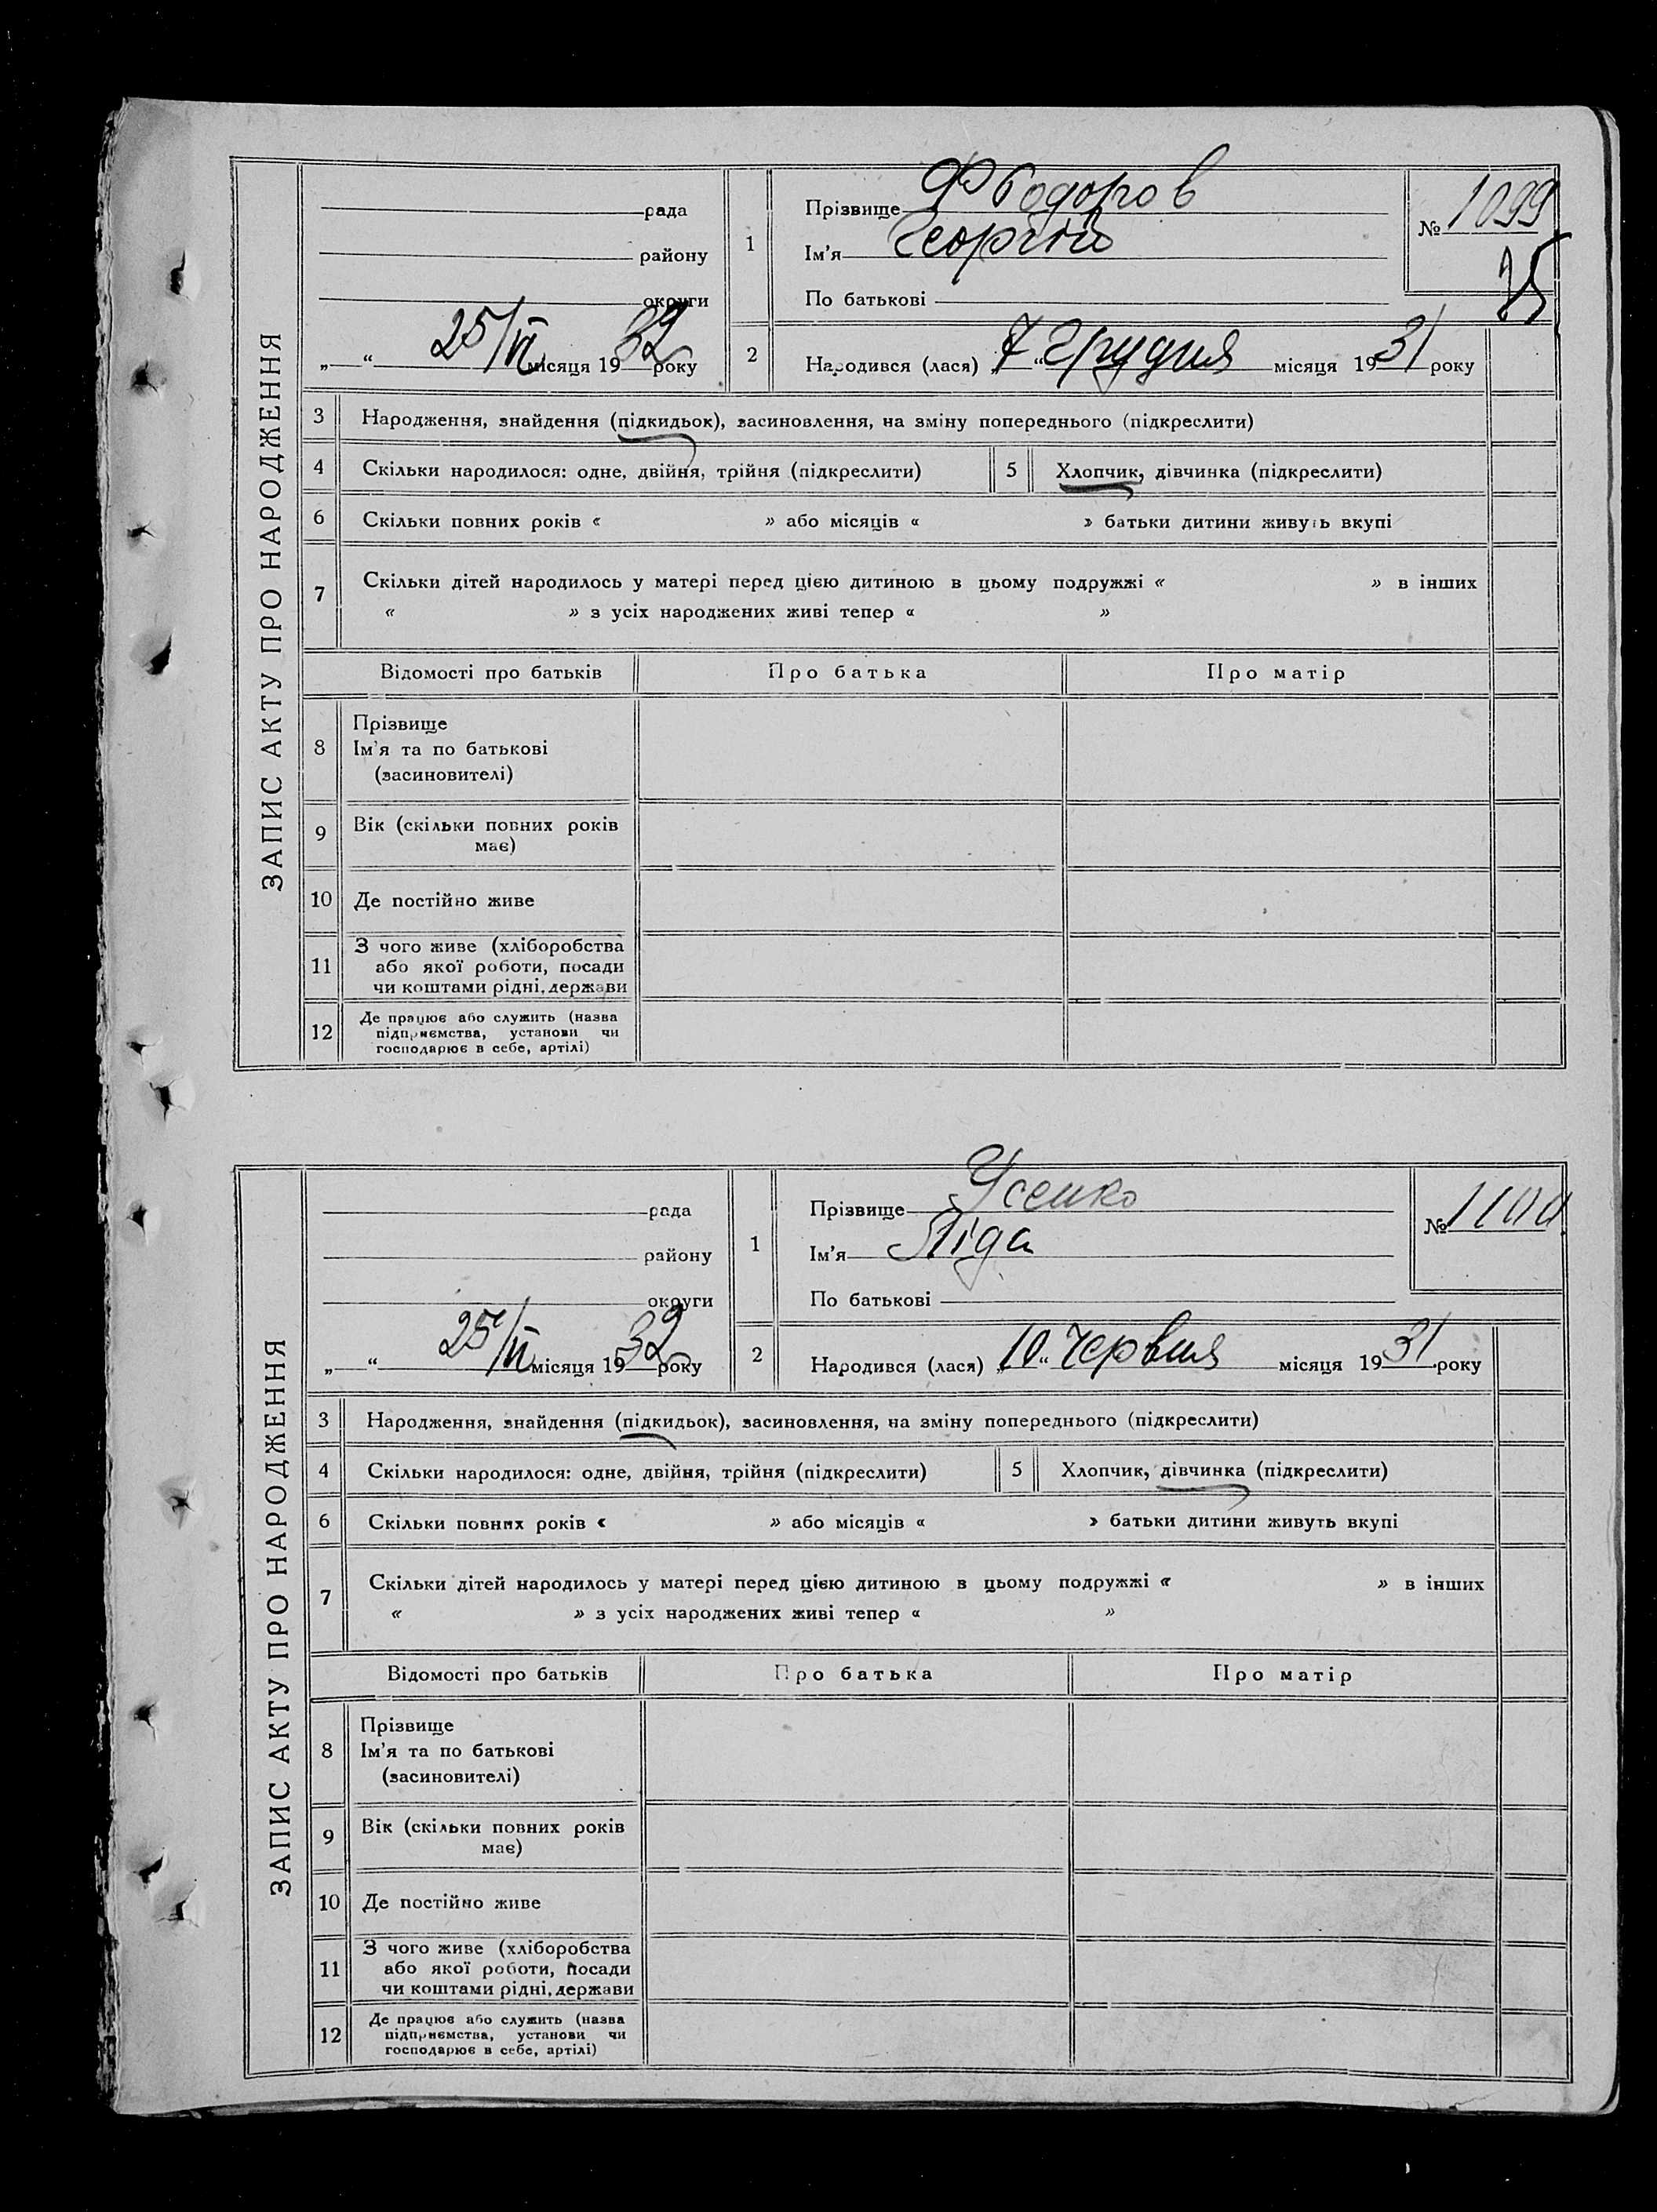 ЗАПИС АКТУ ПРО НАРОДЖЕННЯ
рада
району
округи
25/VI місяця 1932 року
1
Прізвище Фьодоров
Ім'я Георгій
По батькові
№ 1099
25
2
Народився (лася) „7“ Грудня місяця 1931 року
3 Народження, знайдення (підкидьок), засиновлення, на зміну попереднього (підкреслити)
4 Скільки народилося: одне, двійня, трійня (підкреслити) 5 Хлопчик, дівчинка (підкреслити)
6 Скільки повних років « » або місяців « » батьки дитини живуть вкупі
7 Скільки дітей народилось у матері перед цією дитиною в цьому подружжі « » в інших
« » з усіх народжених живі тепер « »
Відомості про батьків Про батька Про матір
8 Прізвище
Ім'я та по батькові
(засиновителі)
9 Вік (скільки повних років
має)
10 Де постійно живе
11 З чого живе (хліборобства
або якої роботи, посади
чи коштами рідні, держави
12 Де працює або служить (назва
підприємства, установи чи
господарює в себе, артілі)
ЗАПИС АКТУ ПРО НАРОДЖЕННЯ
рада
району
округи
„ “ 25/VI місяця 1932 року
1
Прізвище Усенко
Ім'я Ліда
По батькові
№ 1100
2
Народився (лася) „10“ Червня місяця 1931 року
3 Народження, знайдення (підкидьок), засиновлення, на зміну попереднього (підкреслити)
4 Скільки народилося: одне, двійня, трійня (підкреслити) 5 Хлопчик, дівчинка (підкреслити)
6 Скільки повних років « » або місяців « » батьки дитини живуть вкупі
7 Скільки дітей народилось у матері перед цією дитиною в цьому подружжі « » в інших
« » з усіх народжених живі тепер « »
Відомості про батьків Про батька Про матір
8 Прізвище
Ім'я та по батькові
(засиновителі)
9 Вік (скільки повних років
має)
10 Де постійно живе
11 З чого живе (хліборобства
або якої роботи, посади
чи коштами рідні, держави
12 Де працює або служить (назва
підприємства, установи чи
господарює в себе, артілі)